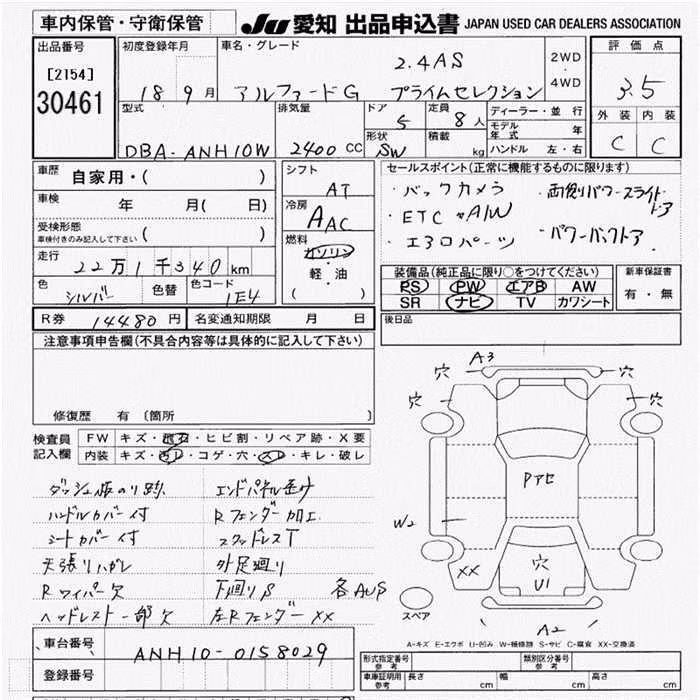 車内保管・守衛保管
JU 愛知 出品申込書 JAPAN USED CAR DEALERS ASSOCIATION
出品番号
[2154]
30461
初度登録年月
18 9 月
車名・グレード
2.4AS
アルファードG プライムセレクション
2WD
・
4WD
評価点
3.5
外装 内装
C C
型式
DBA-ANH10W
排気量
2400 CC
ドア
5
形状
SW
定員
8 人
積載
kg
ディーラー・並行
モデル年式 年
ハンドル 左・右
車歴
自家用・( )
車検
年 月( 日)
受検形態
車検付きのみ記入して下さい ( )
走行
22万1千340 km
色
シルバー
色替
色コード
1E4
シフト
AT
冷房
AAC
燃料
ガソリン
・
軽・油
( )
セールスポイント(正常に機能するものに限ります)
・バックカメラ ・両側パワースライドドア
・ETC ・A/W
・エアロパーツ ・パワーバックドア
装備品(純正品に限り○をつけてください)
PS PW エアB AW
SR ナビ TV カワシート
新車保証書
有・無
R券 14480 円 名変通知期限 月 日
後日品
注意事項申告欄(不具合内容等は具体的に記入して下さい)
修復歴 有 〔箇所 〕
検査員
記入欄
FW キズ・飛石・ヒビ割・リペア跡・X要
内装 キズ・汚レ・コゲ・穴・スレ・キレ・破レ
ダッシュ板のり跡
ハンドルカバー付
シートカバー付
天張リハガレ
Rワイパー欠
ヘッドレスト一部欠
エンドパネル歪み
Rフェンダー加工
スタッドレスT
外足廻り
下廻りS 各AUS
左Rフェンダー XX
A3
穴 穴
穴 穴
Pアセ
W2
XX
穴
U1
A2
スペア
A-キズ E-エクボ U-凹み W-補修跡 S-サビ C-腐食 XX-交換済
車台番号
ANH10-0158029
登録番号
形式指定番号
参考
類別区分番号
参考
車庫証明用
参考
長さ cm 幅 cm 高さ cm